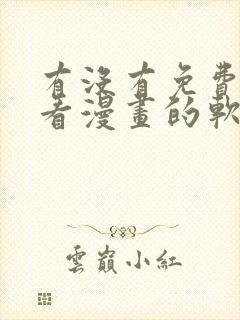 有沒有免費
看漫畫的軟
雲巔小紅